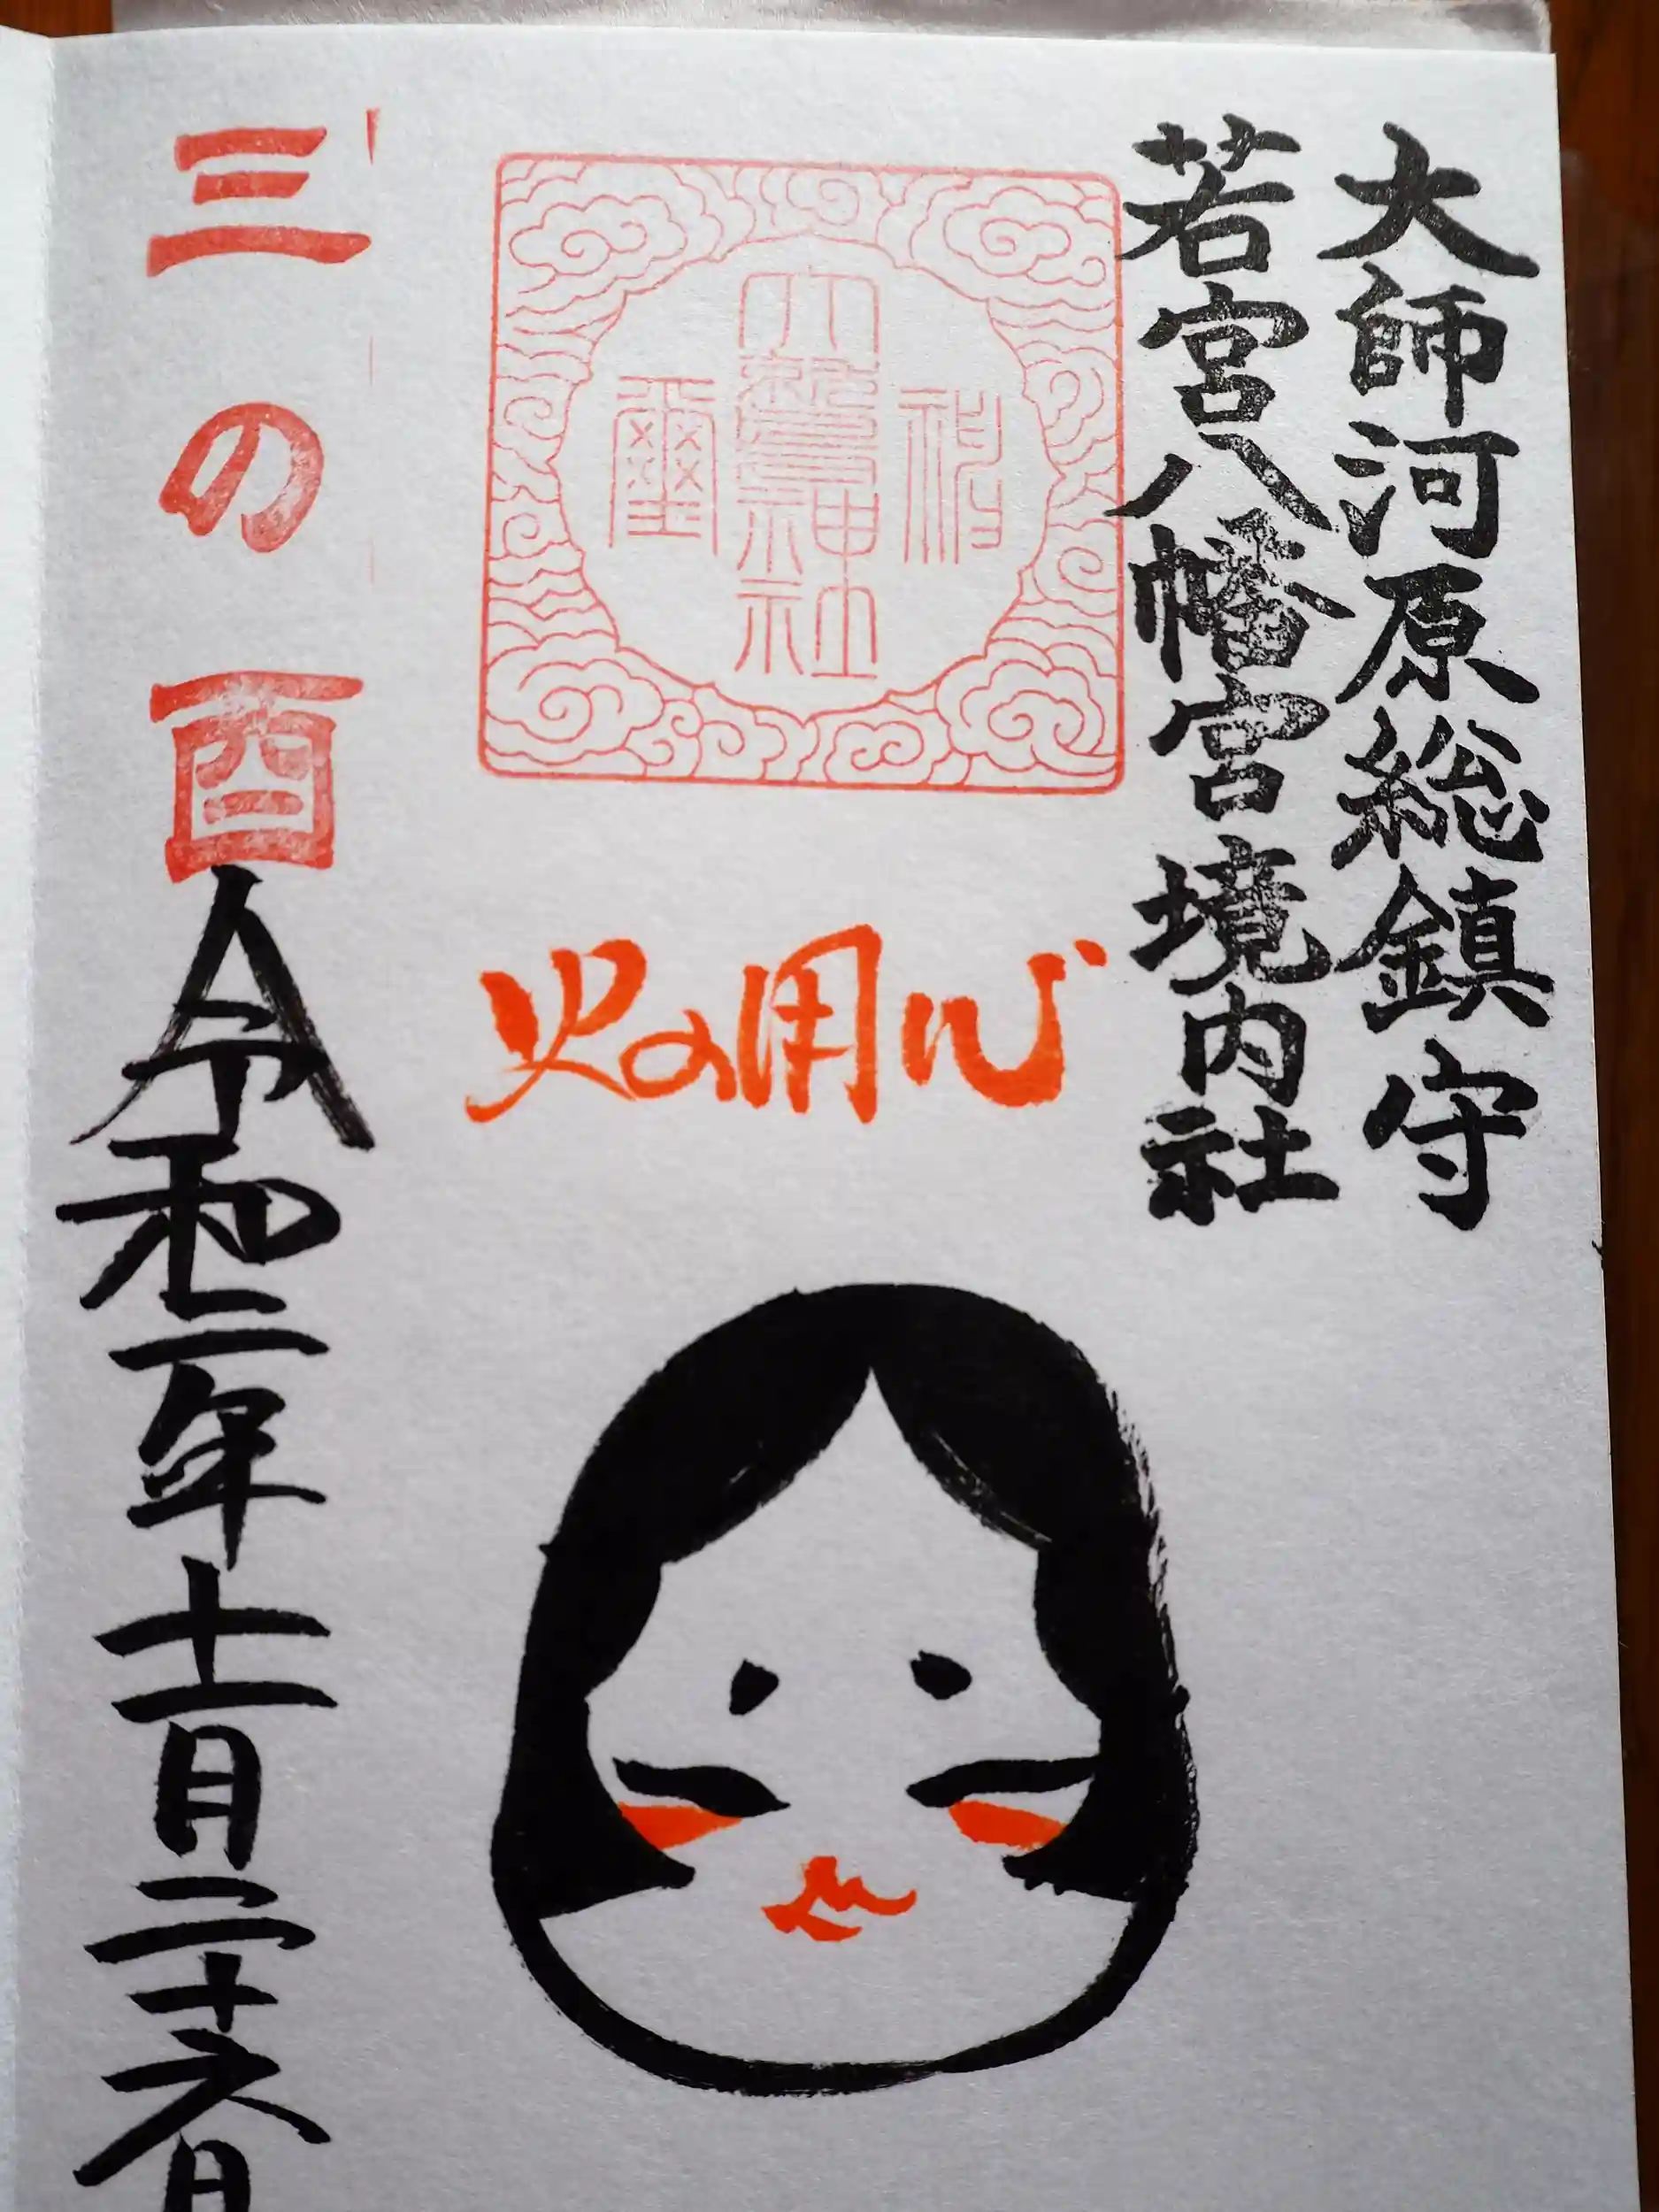 大師河原総鎮守
若宮八幡宮境内社
大鷲神社
璽
火の用心
三の酉
令和二年十一月二十六日